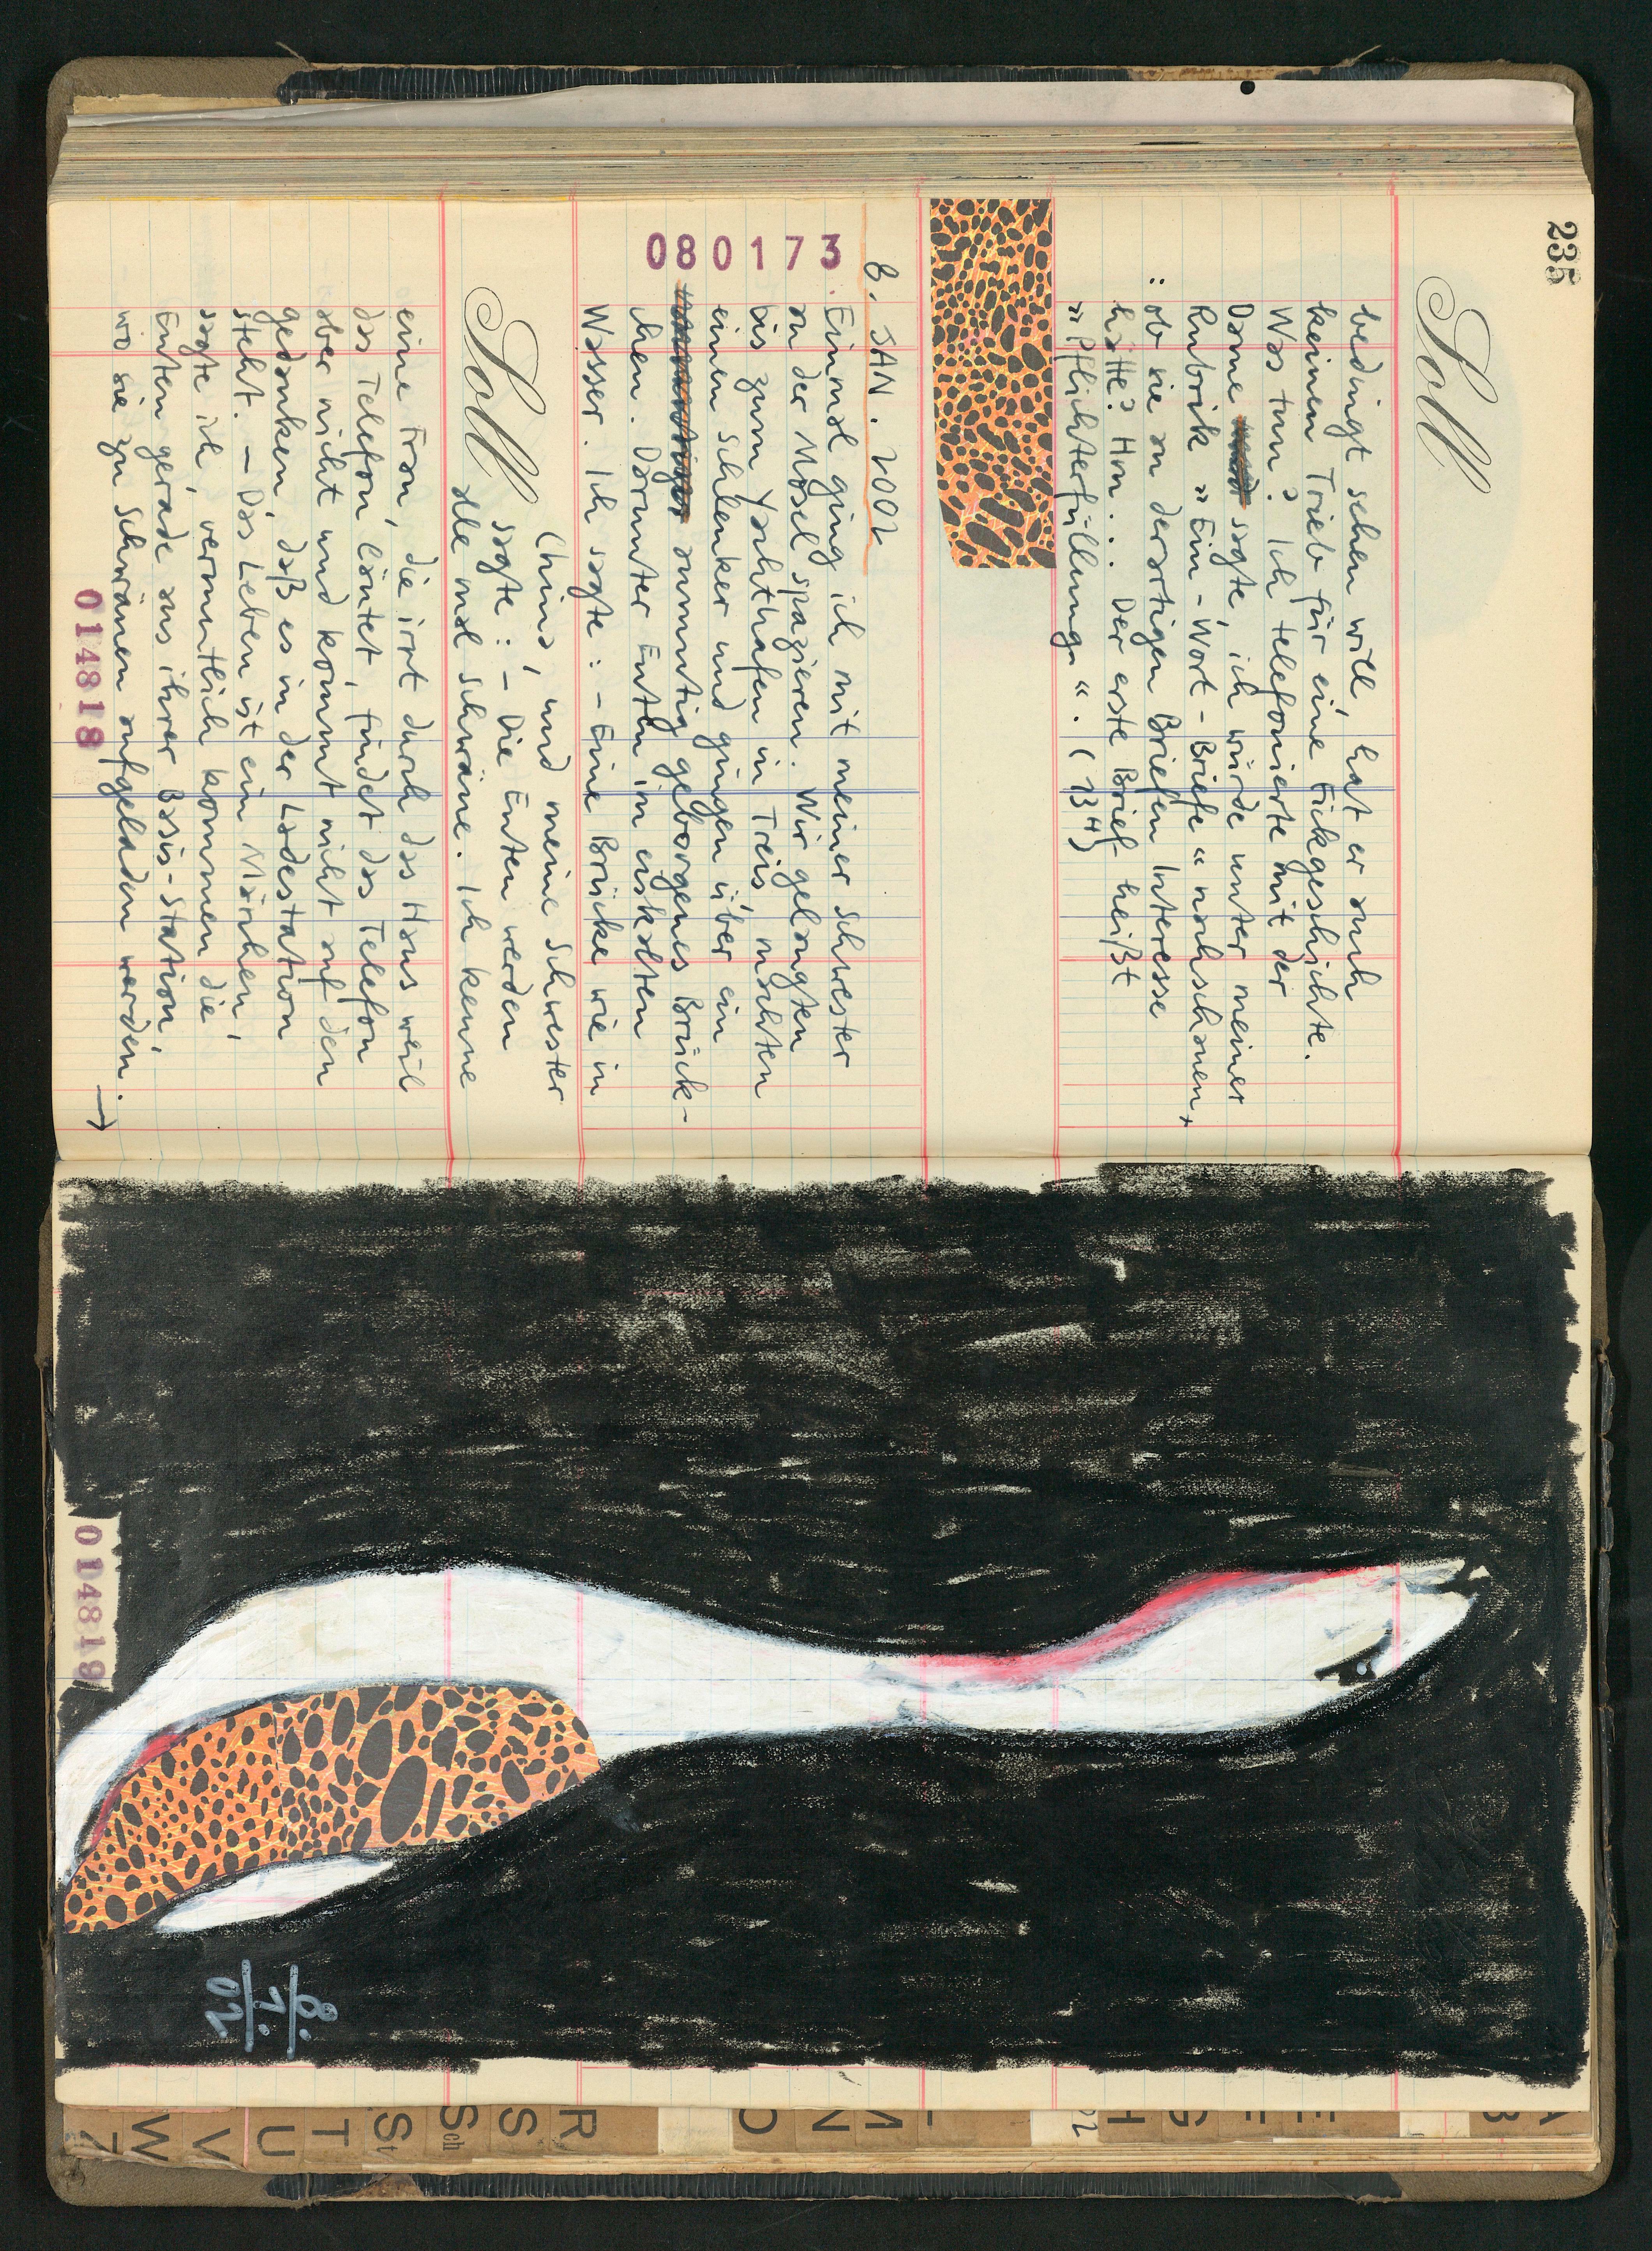 235
Soll
bedingt sehen will, hat er auch
keinen Trieb für eine Fickgeschichte.
Was tun? Ich telefonierte mit der
Dame sagte, ich würde unter meiner
Rubrik »Ein-Wort-Briefe« nachschauen,
ob sie an derartigen Briefen Interesse
hätte? Hm... Der erste Brief heißt
»Pflichterfüllung«. (134)
8. JAN. 2002
080173
Einmal ging ich mit meiner Schwester
an der Mosel spazieren. Wir gelangten
bis zum Yachthafen in Treis, machten
einen Schlenker und gingen über ein
anmutig gebogenes Brück-
chen. Darunter Enten im eiskalten
Wasser. Ich sagte: – Eine Brücke wie in
China, und meine Schwester
sagte: – Die Enten werden
Soll
alle mal Schwäne. Ich kenne
eine Frau, die irrt durch das Haus weil
das Telefon läutet, findet das Telefon
aber nicht und kommt nicht auf den
gedanken, daß es in der Ladestation
steht. – Das Leben ist ein Märchen,
sagte ich, vermutlich kommen die
Enten gerade aus ihrer Basis-Station,
wo sie zu Schwänen aufgeladen werden. →
014818
014819
8.
1.
02
A
B
E
F
G
H
M
N
O
R
S
Sch
St
T
U
V
W
Z